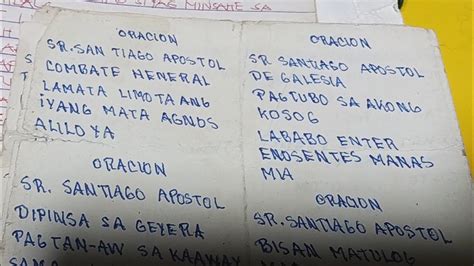 PAG MINSAHE SA
ORACION
SR. SAN TIAGO APOSTOL
COMBATE HENERAL
LAMATA LIMOTA ANG
IYANG MATA AGNOS
ALILOYA
ORACION
SR. SANTIAGO APOSTOL
DIPINSA SA GEYERA
PAGTAN-AW SA KAAWAY
ORACION
SR SANTIAGO APOSTOL
DE GALESIA
PAGTUBO SA AKONG
KOSOG
LABABO ENTER
ENOSENTES MANAS
MIA
ORACION
SR. SANTIAGO APOSTOL
BISAN MATULOG